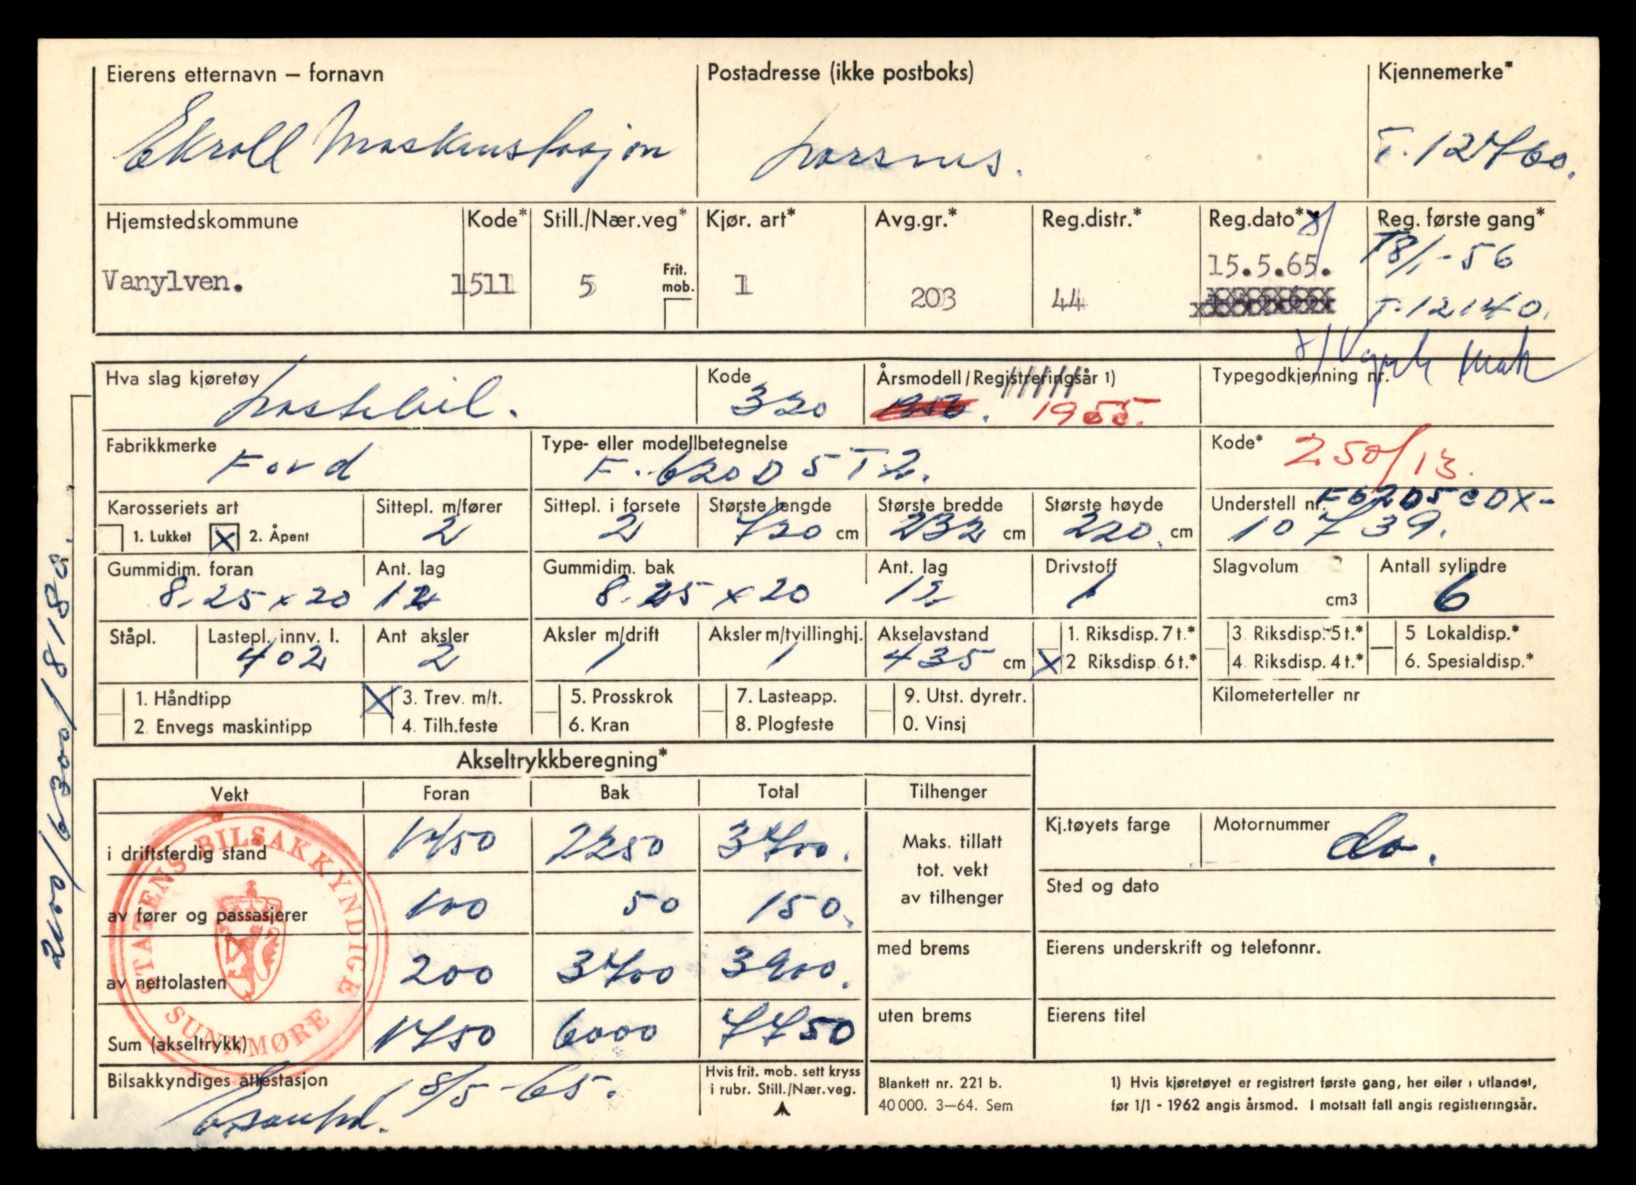 Eierens etternavn – fornavn Postadresse (ikke postboks) Kjennemerke*
Ekroll Maskinstasjon Larsnes. T. 12760.
Hjemstedskommune Kode* Still./Nær.veg* Kjør. art* Avg.gr.* Reg.distr.* Reg.dato* x/ Reg. første gang*
Vanylven. 1511 5 Frit. mob. 1 203 44 15.5.65. 18/1-56
T-12140.
Hva slag kjøretøy Kode Årsmodell/Registreringsår 1) Typegodkjenning nr.
Lastebil. 320 1956. 1955.
Fabrikkmerke Type- eller modellbetegnelse Kode* 250/13.
Ford F. 620 D 5 T 2.
Karosseriets art Sittepl. m/fører Sittepl. i forsete Største lengde Største bredde Største høyde Understell nr. F62D5CDX-
1. Lukket X 2. Åpent 2 2 720 cm 232 cm 220. cm 10739.
Gummidim. foran Ant. lag Gummidim. bak Ant. lag Drivstoff Slagvolum Antall sylindre
8.25 x 20 12 8.25 x 20 12 1 cm3 6
Ståpl. Lastepl. innv. l. Ant aksler Aksler m/drift Aksler m/tvillinghj. Akselavstand 1. Riksdisp. 7 t.* 3. Riksdisp. 5 t.* 5 Lokaldisp.*
402 2 1 1 435 cm X 2 Riksdisp. 6 t.* 4. Riksdisp. 4 t.* 6. Spesialdisp.*
1. Håndtipp X 3. Trev. m/t. 5. Prosskrok 7. Lasteapp. 9. Utst. dyretr. Kilometerteller nr
2. Envegs maskintipp 4. Tilh.feste 6. Kran 8. Plogfeste 0. Vinsj
Akseltrykkberegning*
Vekt Foran Bak Total Tilhenger
i driftsferdig stand 1450 2250 3700. Maks. tillatt tot. vekt av tilhenger Kj.tøyets farge Motornummer do.
av fører og passasjerer 100 50 150. Sted og dato
av nettolasten 200 3700 3900. med brems Eierens underskrift og telefonnr.
Sum (akseltrykk) 1750 6000 7750 uten brems Eierens titel
Bilsakkyndiges attestasjon 8/5-65.
Hvis frit. mob. sett kryss
i rubr. Still./Nær.veg.
Blankett nr. 221 b.
40 000. 3–64. Sem
1) Hvis kjøretøyet er registrert første gang, her eller i utlandet,
før 1/1 - 1962 angis årsmod. I motsatt fall angis registreringsår.
STATENS BILSAKKYNDIGE
SUNNMØRE